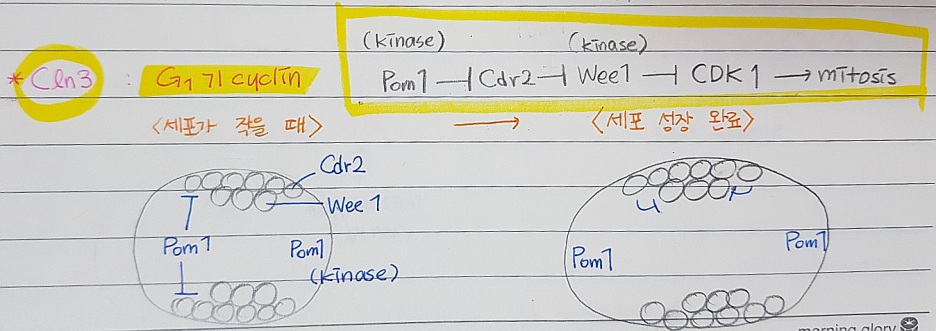 (kinase) (kinase)
* Cln3 : G1기 cyclin Pom1 ⊣ Cdr2 ⊣ Wee1 ⊣ CDK1 → mitosis
<세포가 작을 때> → <세포 성장 완료>
Cdr2
Wee1
Pom1 Pom1
(kinase)
Pom1 Pom1
morning glory